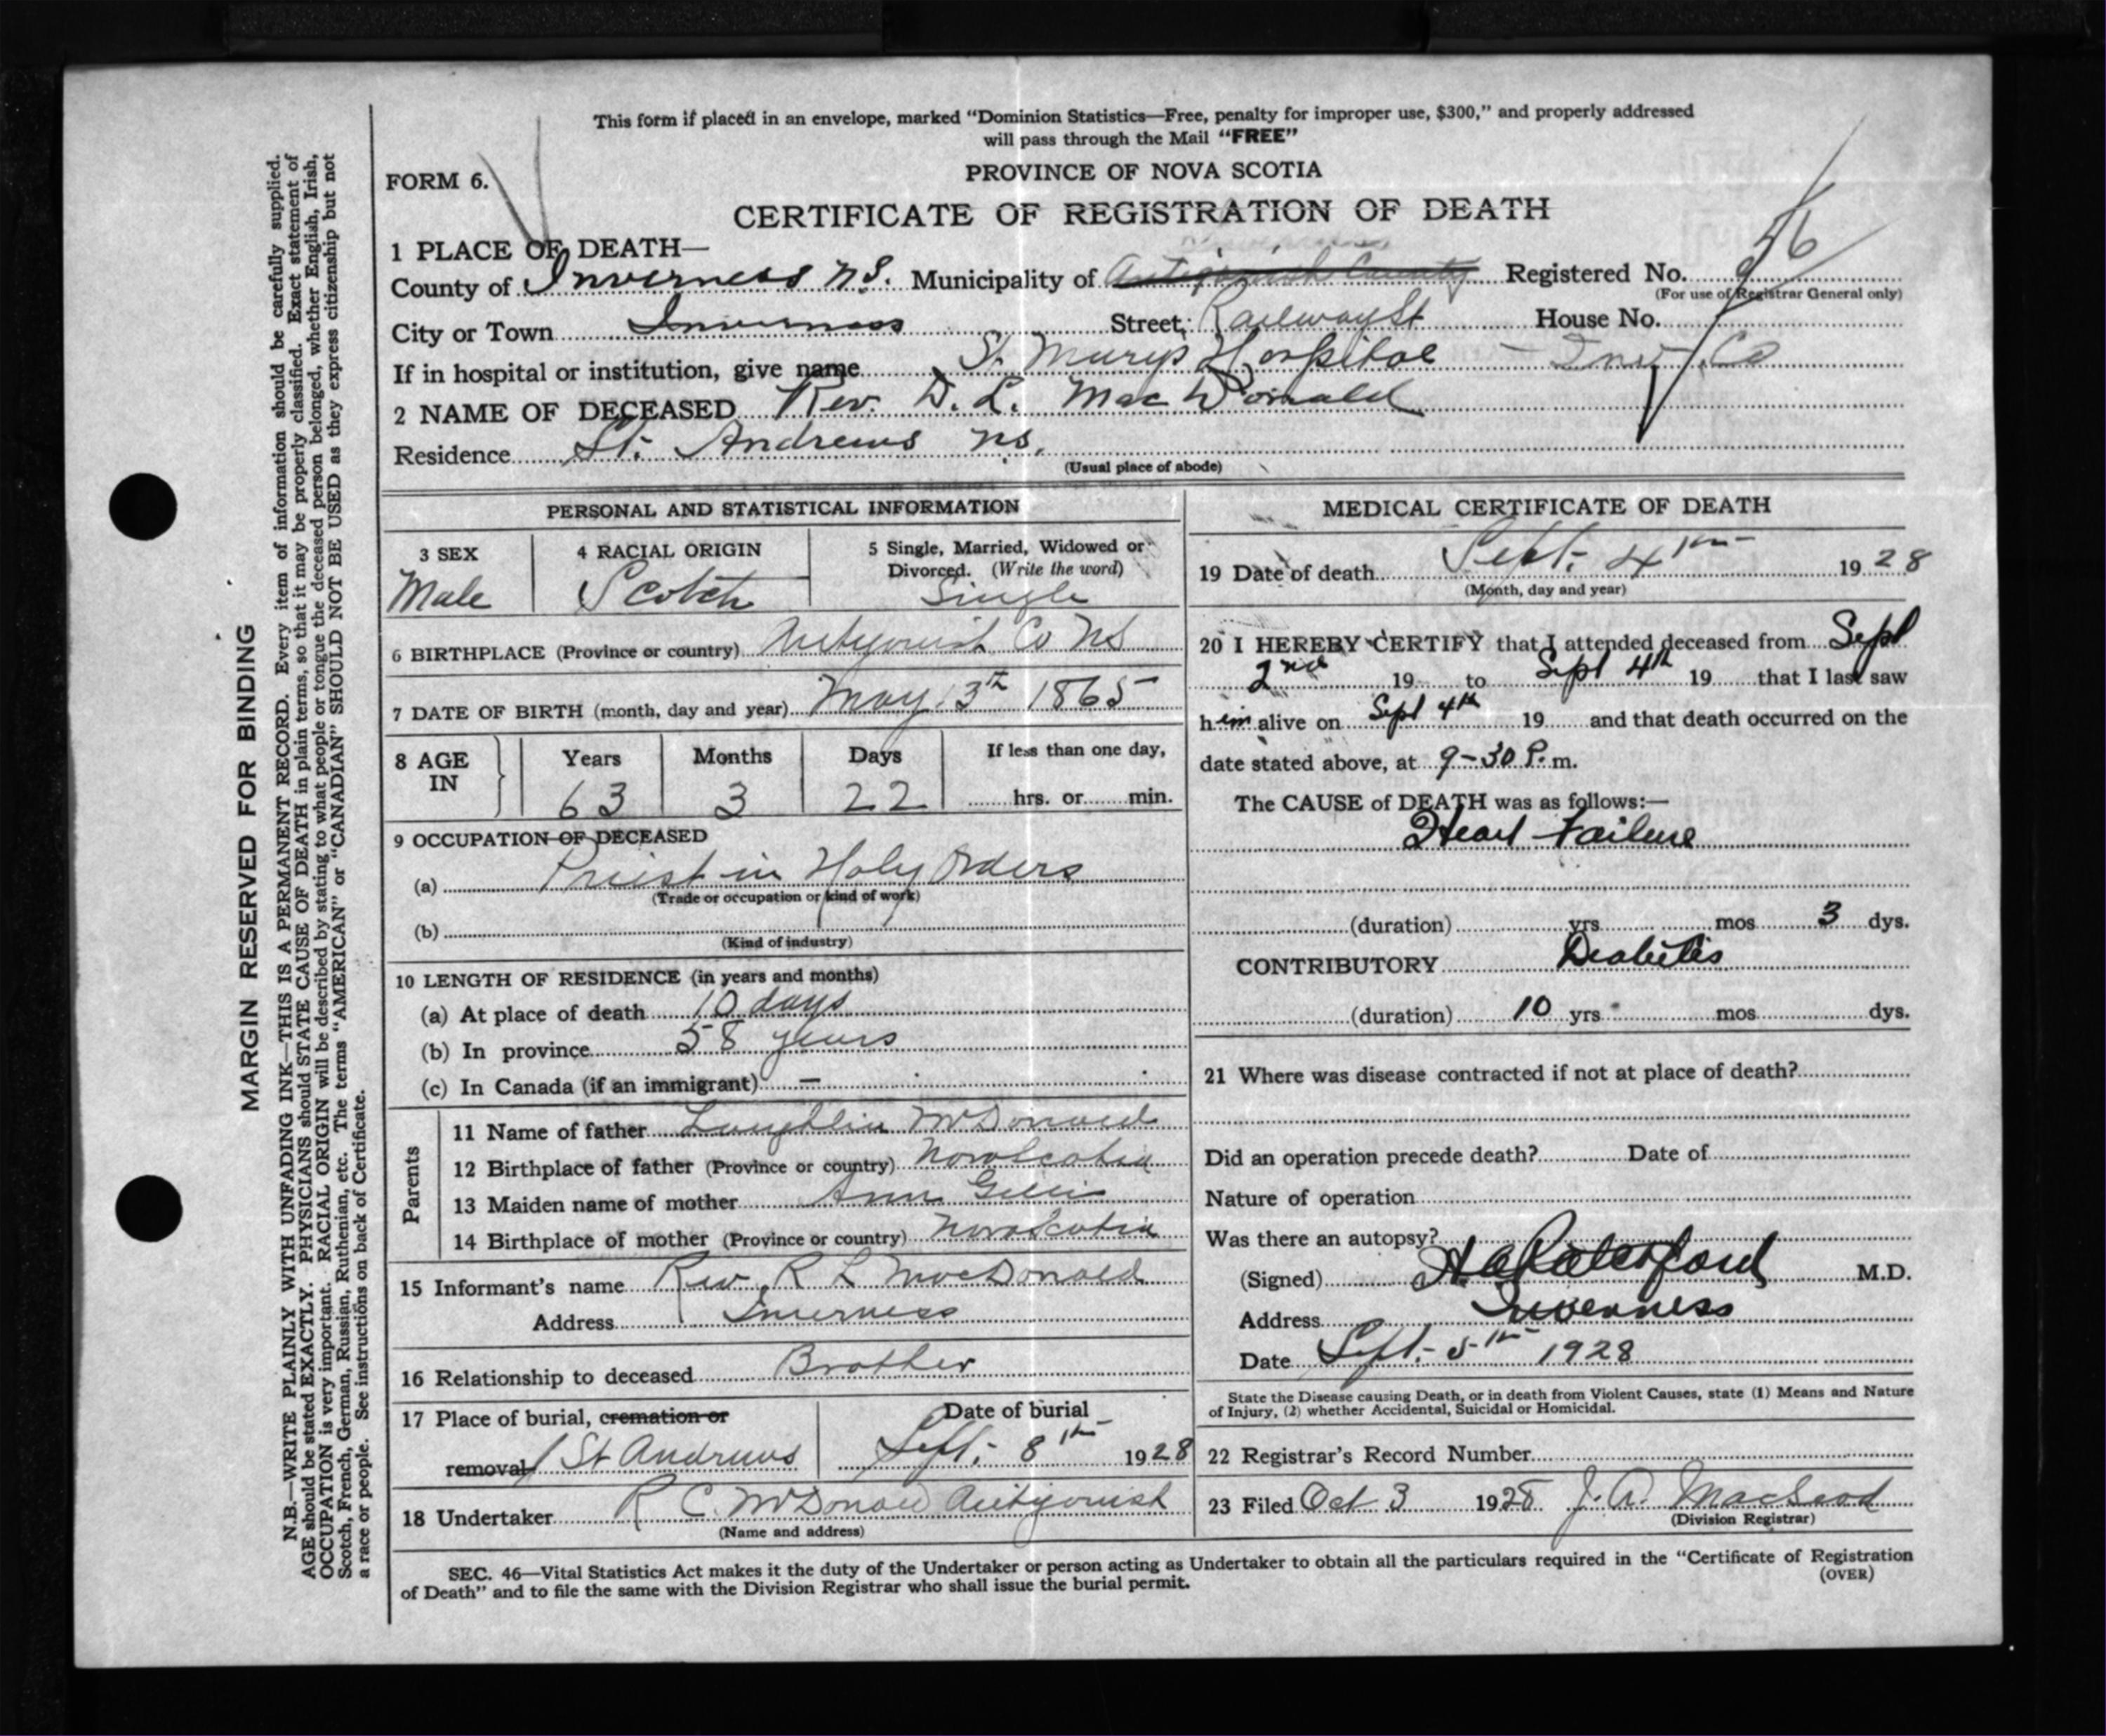 This form if placed in an envelope, marked “Dominion Statistics—Free, penalty for improper use, $300,” and properly addressed
will pass through the Mail “FREE”
FORM 6.
PROVINCE OF NOVA SCOTIA
CERTIFICATE OF REGISTRATION OF DEATH
1 PLACE OF DEATH—
County of Inverness N.S. Municipality of Antigonish County Registered No.
(For use of Registrar General only)
City or Town Inverness Street; Railway St House No.
If in hospital or institution, give name St. Marys Hospital - Inv. Co
2 NAME OF DECEASED Rev. D. L. MacDonald
Residence St. Andrews N.S.
(Usual place of abode)
PERSONAL AND STATISTICAL INFORMATION
3 SEX 4 RACIAL ORIGIN 5 Single, Married, Widowed or
Divorced. (Write the word)
Male Scotch Single
6 BIRTHPLACE (Province or country) Antigonish Co NS
7 DATE OF BIRTH (month, day and year) May 13th 1865
8 AGE IN Years Months Days If less than one day,
63 3 22 hrs. or min.
9 OCCUPATION OF DECEASED
(a) Priest in Holy Orders
(Trade or occupation or kind of work)
(b)
(Kind of industry)
10 LENGTH OF RESIDENCE (in years and months)
(a) At place of death 10 days
(b) In province 58 years
(c) In Canada (if an immigrant) —
Parents
11 Name of father Laughlin McDonald
12 Birthplace of father (Province or country) Nova Scotia
13 Maiden name of mother Ann Gillis
14 Birthplace of mother (Province or country) Nova Scotia
15 Informant's name Rev. R L MacDonald
Address Inverness
16 Relationship to deceased Brother
17 Place of burial, cremation or Date of burial
removal St Andrews Sept. 8th 1928
18 Undertaker R C. McDonald Antigonish
(Name and address)
MEDICAL CERTIFICATE OF DEATH
19 Date of death Sept. 4th 1928
(Month, day and year)
20 I HEREBY CERTIFY that I attended deceased from Sept
2nd 19 to Sept 4th 19 that I last saw
him alive on Sept 4th 19 and that death occurred on the
date stated above, at 9-30 P. m.
The CAUSE of DEATH was as follows:—
Heart Failure
(duration) yrs mos 3 dys.
CONTRIBUTORY Diabetis
(duration) 10 yrs mos dys.
21 Where was disease contracted if not at place of death?
Did an operation precede death? Date of
Nature of operation
Was there an autopsy?
(Signed) M.D.
Address Inverness
Date Sept. 5th 1928
State the Disease causing Death, or in death from Violent Causes, state (1) Means and Nature
of Injury, (2) whether Accidental, Suicidal or Homicidal.
22 Registrar's Record Number
23 Filed Oct 3 1928 J. A. MacLeod
(Division Registrar)
SEC. 46—Vital Statistics Act makes it the duty of the Undertaker or person acting as Undertaker to obtain all the particulars required in the “Certificate of Registration
of Death” and to file the same with the Division Registrar who shall issue the burial permit.
(OVER)
MARGIN RESERVED FOR BINDING
N.B.—WRITE PLAINLY WITH UNFADING INK—THIS IS A PERMANENT RECORD. Every item of information should be carefully supplied.
AGE should be stated EXACTLY. PHYSICIANS should STATE CAUSE OF DEATH in plain terms, so that it may be properly classified. Exact statement of
OCCUPATION is very important. RACIAL ORIGIN will be described by stating to what people or tongue the deceased person belonged, whether English, Irish,
Scotch, French, German, Russian, Ruthenian, etc. The terms “AMERICAN” or “CANADIAN” SHOULD NOT BE USED as they express citizenship but not
a race or people. See instructions on back of Certificate.